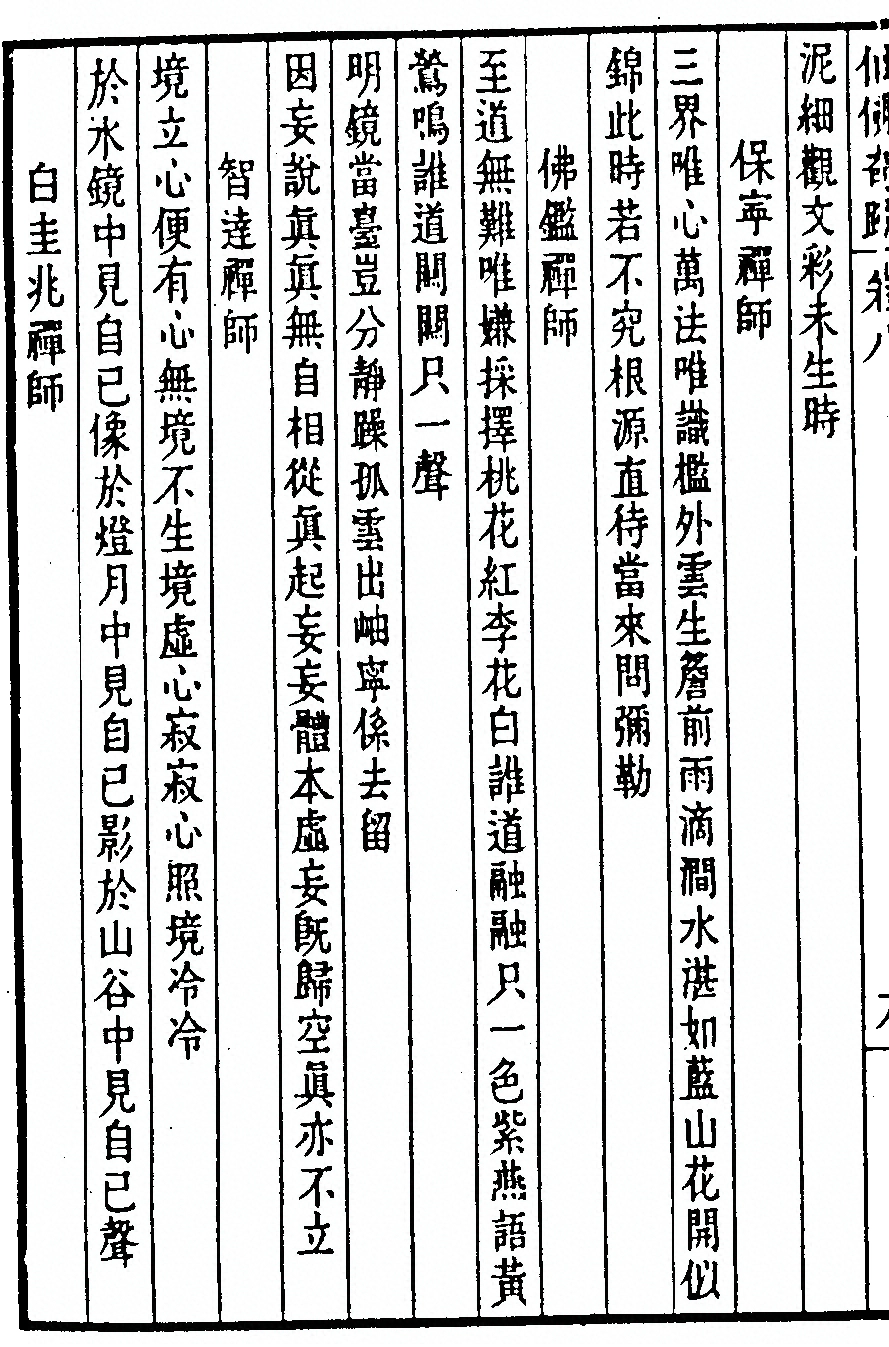 泥細觀文彩未生時
保寕禪師
三界唯心萬法唯識檻外雲生簷前雨滴澗水湛如藍山花開似
錦此時若不究根源直待當來問彌勒
佛鑑禪師
至道無難唯嫌採擇桃花紅李花白誰道融融只一色紫燕語黃
鶯鳴誰道關關只一聲
明鏡當臺豈分靜躁孤雲出岫寧係去留
因妄說眞眞無自相從眞起妄妄體本虛妄旣歸空眞亦不立
智達禪師
境立心便有心無境不生境虛心寂寂心照境冷冷
於水鏡中見自已像於燈月中見自已影於山谷中見自已聲
白圭兆禪師